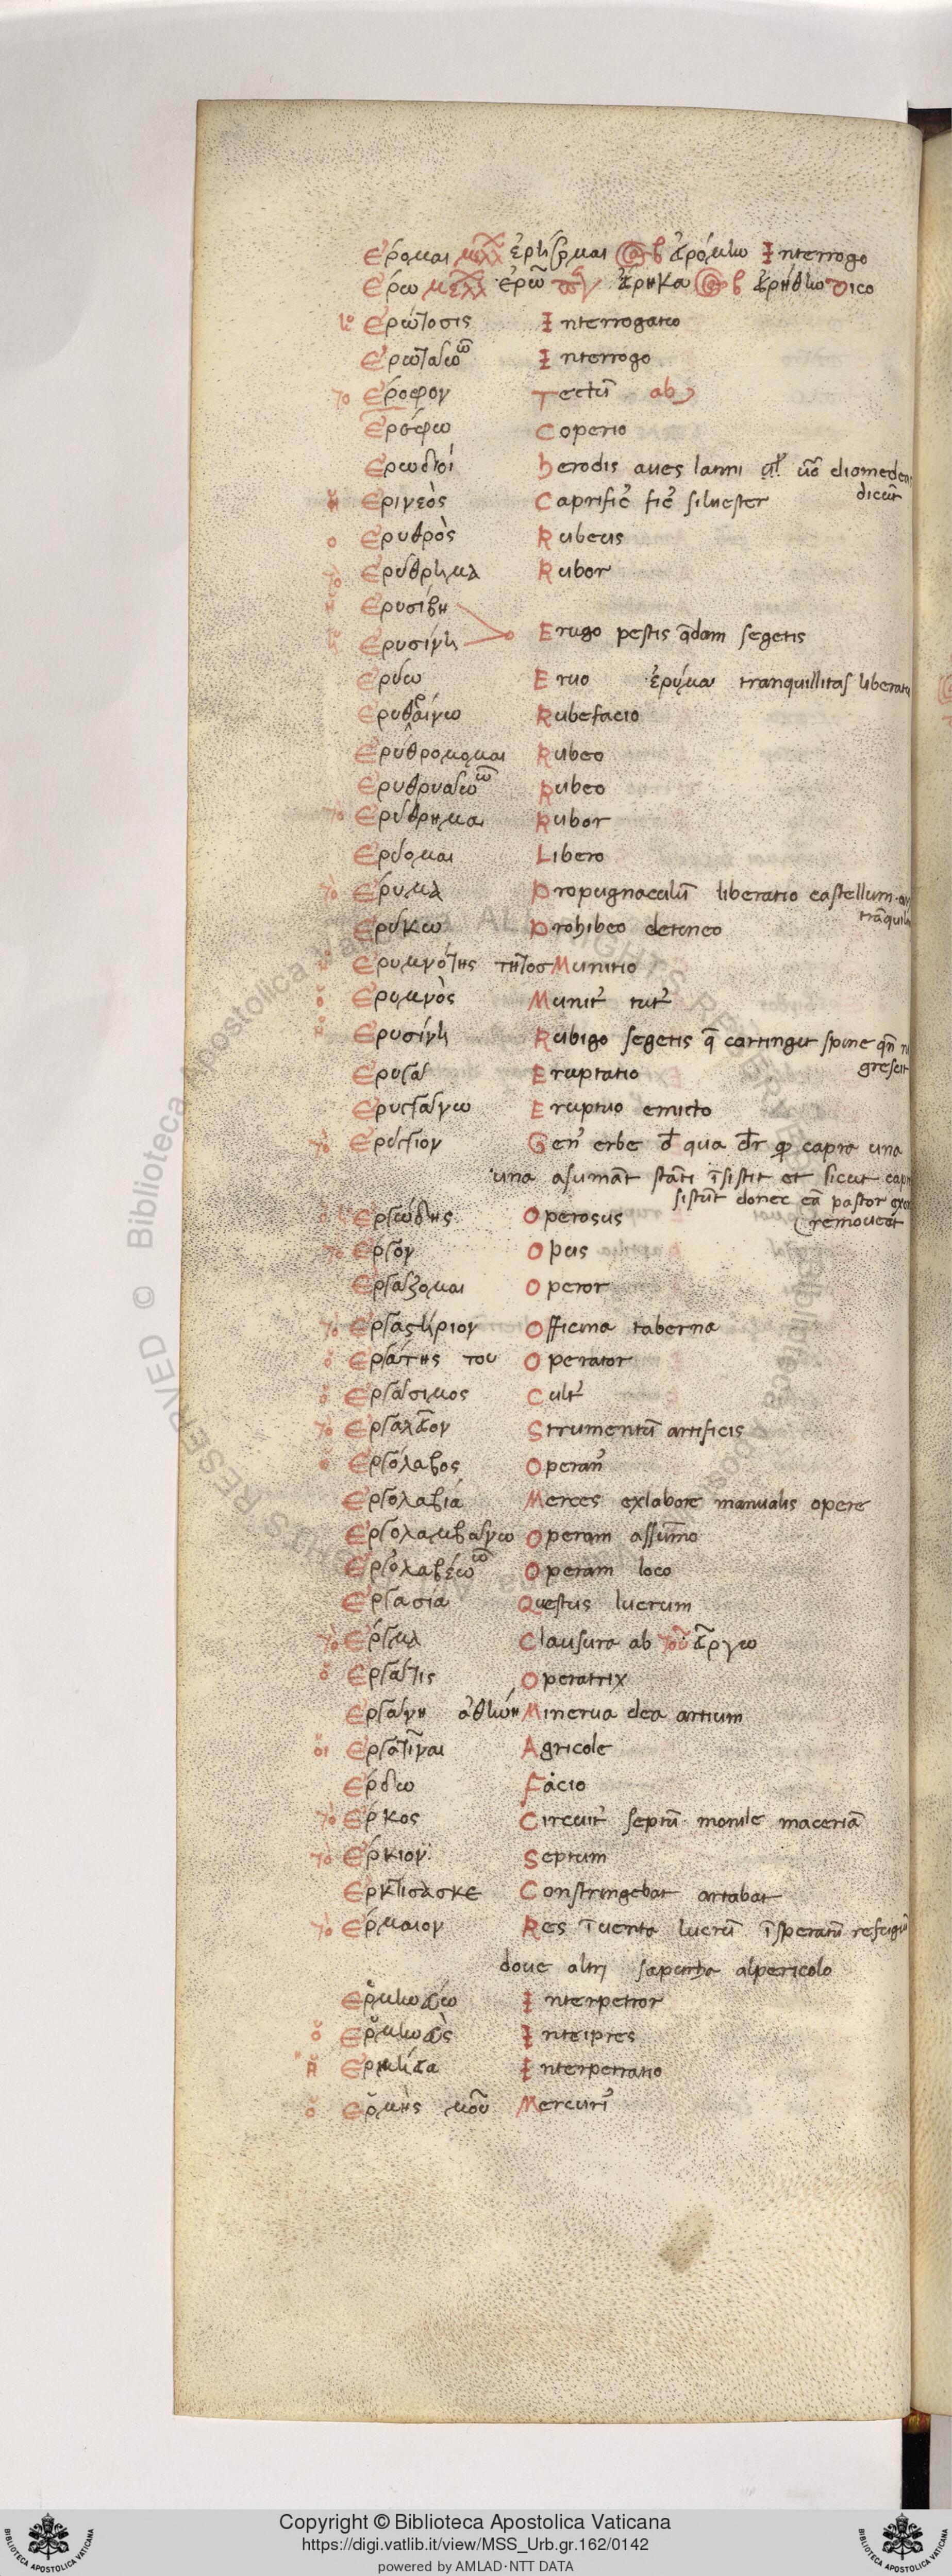 Ερόμαι μέλλ ἐρήσομαι αβ ειρόμην Interrogo
Ερω μέλλ ἐρῶ πκ είρηκα αβ ειρήθην Dico
Ερώτοσις Interrogatio
Ερωταω ῶ Interrogo
το Ερόφον Tectū ab
Ερέφω Coperio
Ερωδιοί herodis aues lanni diomedeas
dicūt
Ερινεὸς Caprific' fic' siluester
ο Ερυθρὸς Rubeus
το Ερύθρημα Rubor
Ερυσίβη
Ερυσίνη Erugo pestis q̄dam segetis
Ερύω Eruo ἐρύμαι tranquillitas liberatio
Ερυθραίνω Rubefacio
Ερύθρομομαι Rubeo
Ερυθρυαω ῶ Rubeo
το Ερύθρημαι Rubor
Ερύομαι Libero
το Έρυμα Propugnaculū liberatio castellum
trāquil
Ερύκω Prohibeo detineo
Ερυμνότης τητος Munitio
ο Ερυμνὸς Munit' tut'
Ερυσίνη Rubigo segetis q̄ cōrtingit spine qn̄ ni
grescit
Ερυγα Eruptatio
Ερυγγαγω Eruptuo emicto
το Ερύγγιον Gen' erbe d̄ qua dr̄ capra una
una asumāt stāti īsistit et sicut cap
sistūt donec eā pastor exore
remoueat
Εργώδης Operosus
το Εργον Opus
Εργαζομαι Operor
το Εργαστήριον Officina taberna
ο Εργάτης του Operator
ο Εργάσιμος Cult'
το Εργαλεῖον Strumentū artificis
ο Εργόλαβος Operan'
Εργολαβιά Merces exlabore manualis opere
Εργολαμβαγω Operam assūmo
Εργολαβέω ῶ Operam loco
Εργασία Questus lucrum
το Εργμα Clausura ab τοῦ εἴργω
Εργατις Operatrix
Εργαγη ἀθηνη Minerua dea artium
οι Εργατῖναι Agricole
Ερδω Facio
το Ερκος Circuit' septū monile maceriā
το Ερκιον Septum
Ερκτισασκε Constringebat artabat
το Ερμαιον Res īuenta lucrū īsperatū refugiū
doue altrj saputo alpericolo
Ερμηνείω Interpetror
ο Ερμηνεὺς Interpres
Ερμηνεία Interpetratio
ο Ερμῆς μοῦ Mercuri'
Copyright © Biblioteca Apostolica Vaticana
https://digi.vatlib.it/view/MSS_Urb.gr.162/0142
powered by AMLAD·NTT DATA